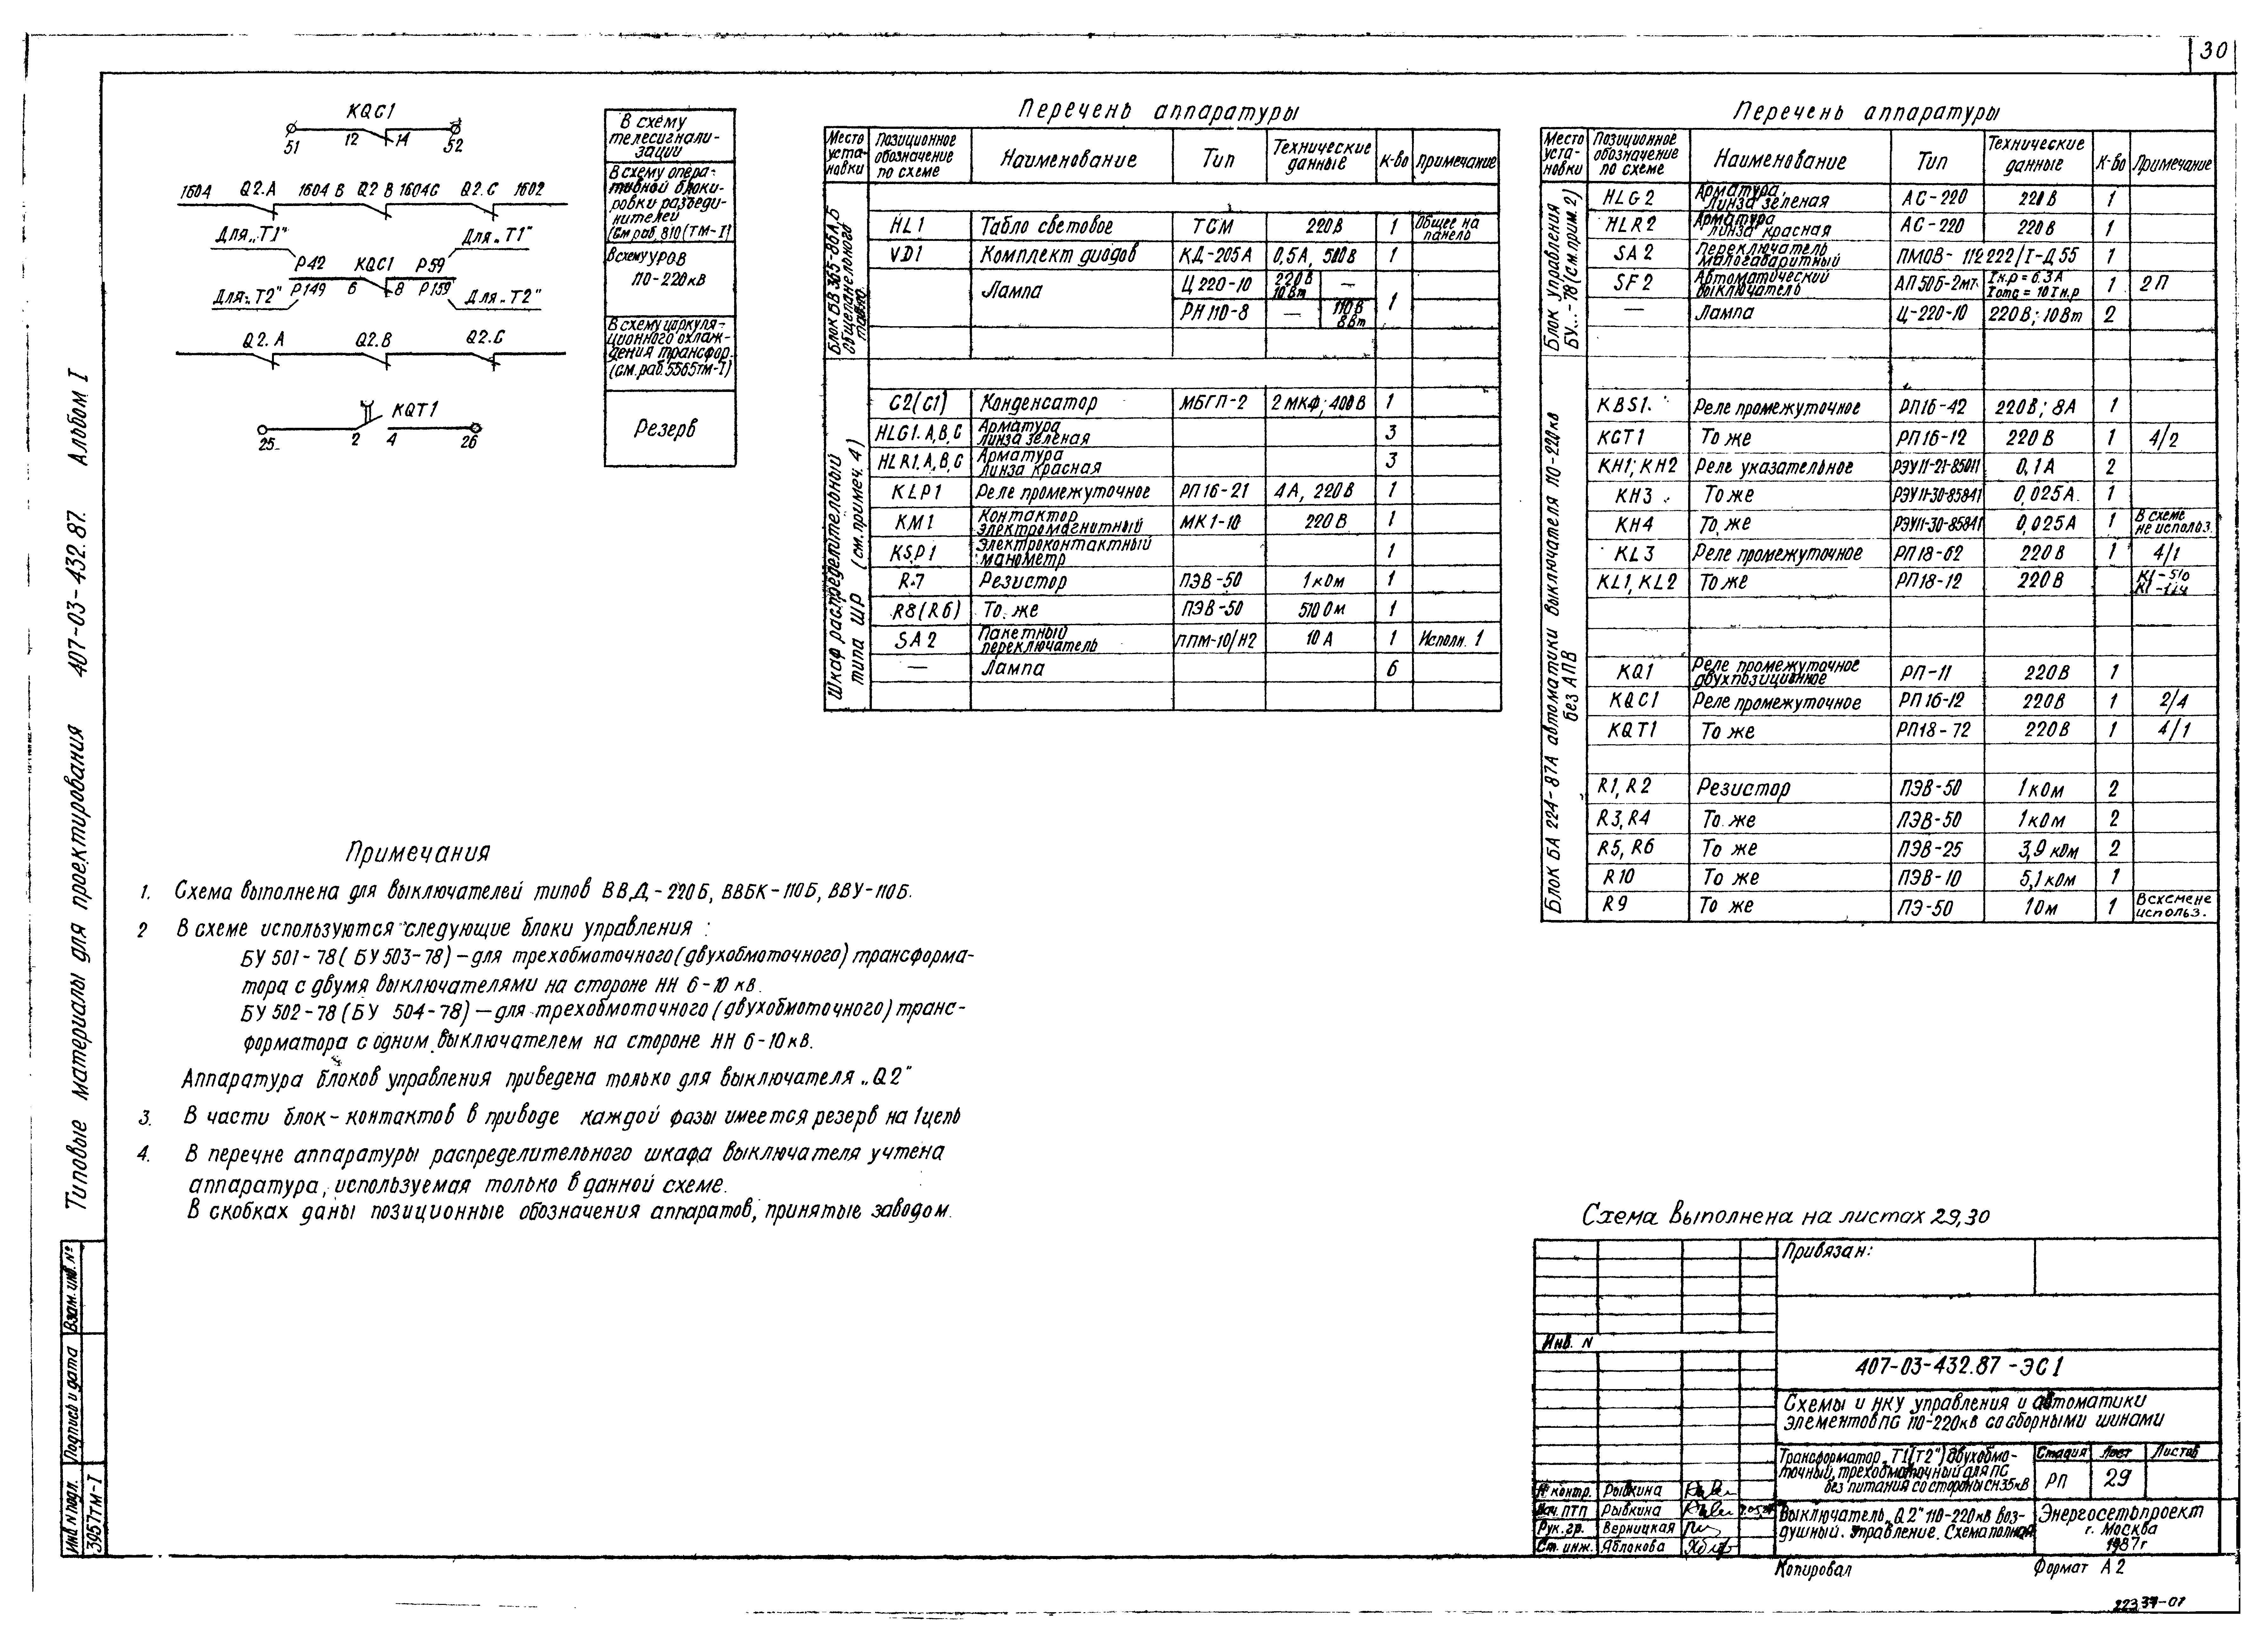 30
KQC1
51 12 14 52
1604 Q2.A 1604 В Q2 В 1604С Q2.С 1602
Для „Т1" Для „Т1"
Р42 KQC1 Р59
Р149 6 8 Р159
Для „Т2" Для „Т2"
Q2.А Q2.В Q2.С
KQT1
25 2 4 26
В схему
телесигнали-
зации
В схему опера-
тивной блоки-
ровки разъеди-
нителей
(см.раб. 810(ТМ-I)
В схему УРОВ
110-220кВ
В схему циркуля-
ционного охлаж-
дения трансфор.
(см.раб.5565тм-I)
Резерв
Перечень аппаратуры
Место уста-новки Позиционное обозначение по схеме Наименование Тип Технические данные К-во Примечание
Блок БВ 365-86А,Б общепанельного табло
HL1 Табло световое ТСМ 220В 1 Общее на панель
VD1 Комплект диодов КД-205А 0,5А, 500В 1
Лампа Ц 220-10 220В 10Вт — 1
РН 110-8 — 110В 8Вт
Шкаф распределительный типа ШР (см.примеч. 4)
C2(C1) Конденсатор МБГП-2 2 мкф; 400В 1
HLG1.А,В,С Арматура линза зеленая 3
HLR1.А,В,С Арматура линза красная 3
KLP1 Реле промежуточное РП 16-21 4А, 220В 1
KM1 Контактор электромагнитный МК1-10 220В 1
KSP1 Электроконтактный манометр 1
R7 Резистор ПЭВ-50 1ком 1
R8(R6) То же ПЭВ-50 510 Ом 1
SA2 Пакетный переключатель ППМ-10/Н2 10 А 1 Исполн. 1
— Лампа 6
Перечень аппаратуры
Место уста-новки Позиционное обозначение по схеме Наименование Тип Технические данные К-во Примечание
Блок управления БУ...-78(см.прим.2)
HLG2 Арматура, линза зеленая АС-220 220В 1
HLR2 Арматура линза красная АС-220 220В 1
SA2 Переключатель малогабаритный ПМОВ-112222/I-Д55 1
SF2 Автоматический выключатель АП50Б-2мт Iн.р = 6.3А Iотс = 10Iн.р 1 2П
— Лампа Ц-220-10 220В; 10Вт 2
Блок БА 224-87А автоматики выключателя 110-220кВ без АПВ
KBS1. Реле промежуточное РП16-42 220В; 8А 1
KCT1 То же РП16-12 220В 1 4/2
KH1; KH2 Реле указательное РЭУ11-21-85011 0,1А 2
KH3 То же РЭУ11-30-85841 0,025А 1
KH4 То же РЭУ11-30-85841 0,025А 1 В схеме не использ.
KL3 Реле промежуточное РП18-62 220В 1 4/1
KL1, KL2 То же РП18-12 220В
KQ1 Реле промежуточное двухпозиционное РП-11 220В 1
KQC1 Реле промежуточное РП16-12 220В 1 2/4
KQT1 То же РП18-72 220В 1 4/1
R1, R2 Резистор ПЭВ-50 1ком 2
R3, R4 То же ПЭВ-50 1ком 2
R5, R6 То же ПЭВ-25 3,9 ком 2
R10 То же ПЭВ-10 5,1ком 1
R9 То же ПЭ-50 1ом 1 В схеме не использ.
Примечания
1. Схема выполнена для выключателей типов ВВД-220Б, ВВБК-110Б, ВВУ-110Б.
2 В схеме используются следующие блоки управления :
БУ 501-78( БУ 503-78)-для трехобмоточного(двухобмоточного) трансформа-
тора с двумя выключателями на стороне НН 6-10 кВ.
БУ 502-78(БУ 504-78)-для трехобмоточного(двухобмоточного) транс-
форматора с одним выключателем на стороне НН 6-10кВ.
Аппаратура блоков управления приведена только для выключателя „Q2"
3. В части блок-контактов в приводе каждой фазы имеется резерв на 1цепь
4. В перечне аппаратуры распределительного шкафа выключателя учтена
аппаратура, используемая только в данной схеме.
В скобках даны позиционные обозначения аппаратов, принятые заводом.
Типовые материалы для проектирования 407-03-432.87. Альбом I
Схема выполнена на листах 29,30
Привязан:
Инв. N
407-03-432.87-ЭС1
Схемы и НКУ управления и автоматики
элементов ПС 110-220кВ со сборными шинами
Трансформатор „Т1(Т2") двухобмо-
точный, трехобмоточный для ПС
без питания со стороны СН 35кВ
Стадия Лист Листов
РП 29
Н контр. Рыбкина
Нач. ПТП Рыбкина
Рук. гр. Верницкая
Ст. инж. Яблокова
Выключатель „Q2" 110-220кВ воз-
душный. Управление. Схема полная
Энергосетьпроект
г. Москва
1987г
Копировал Формат А2
Инв N подл. Подпись и дата Взам. инв. №
3957тм-I